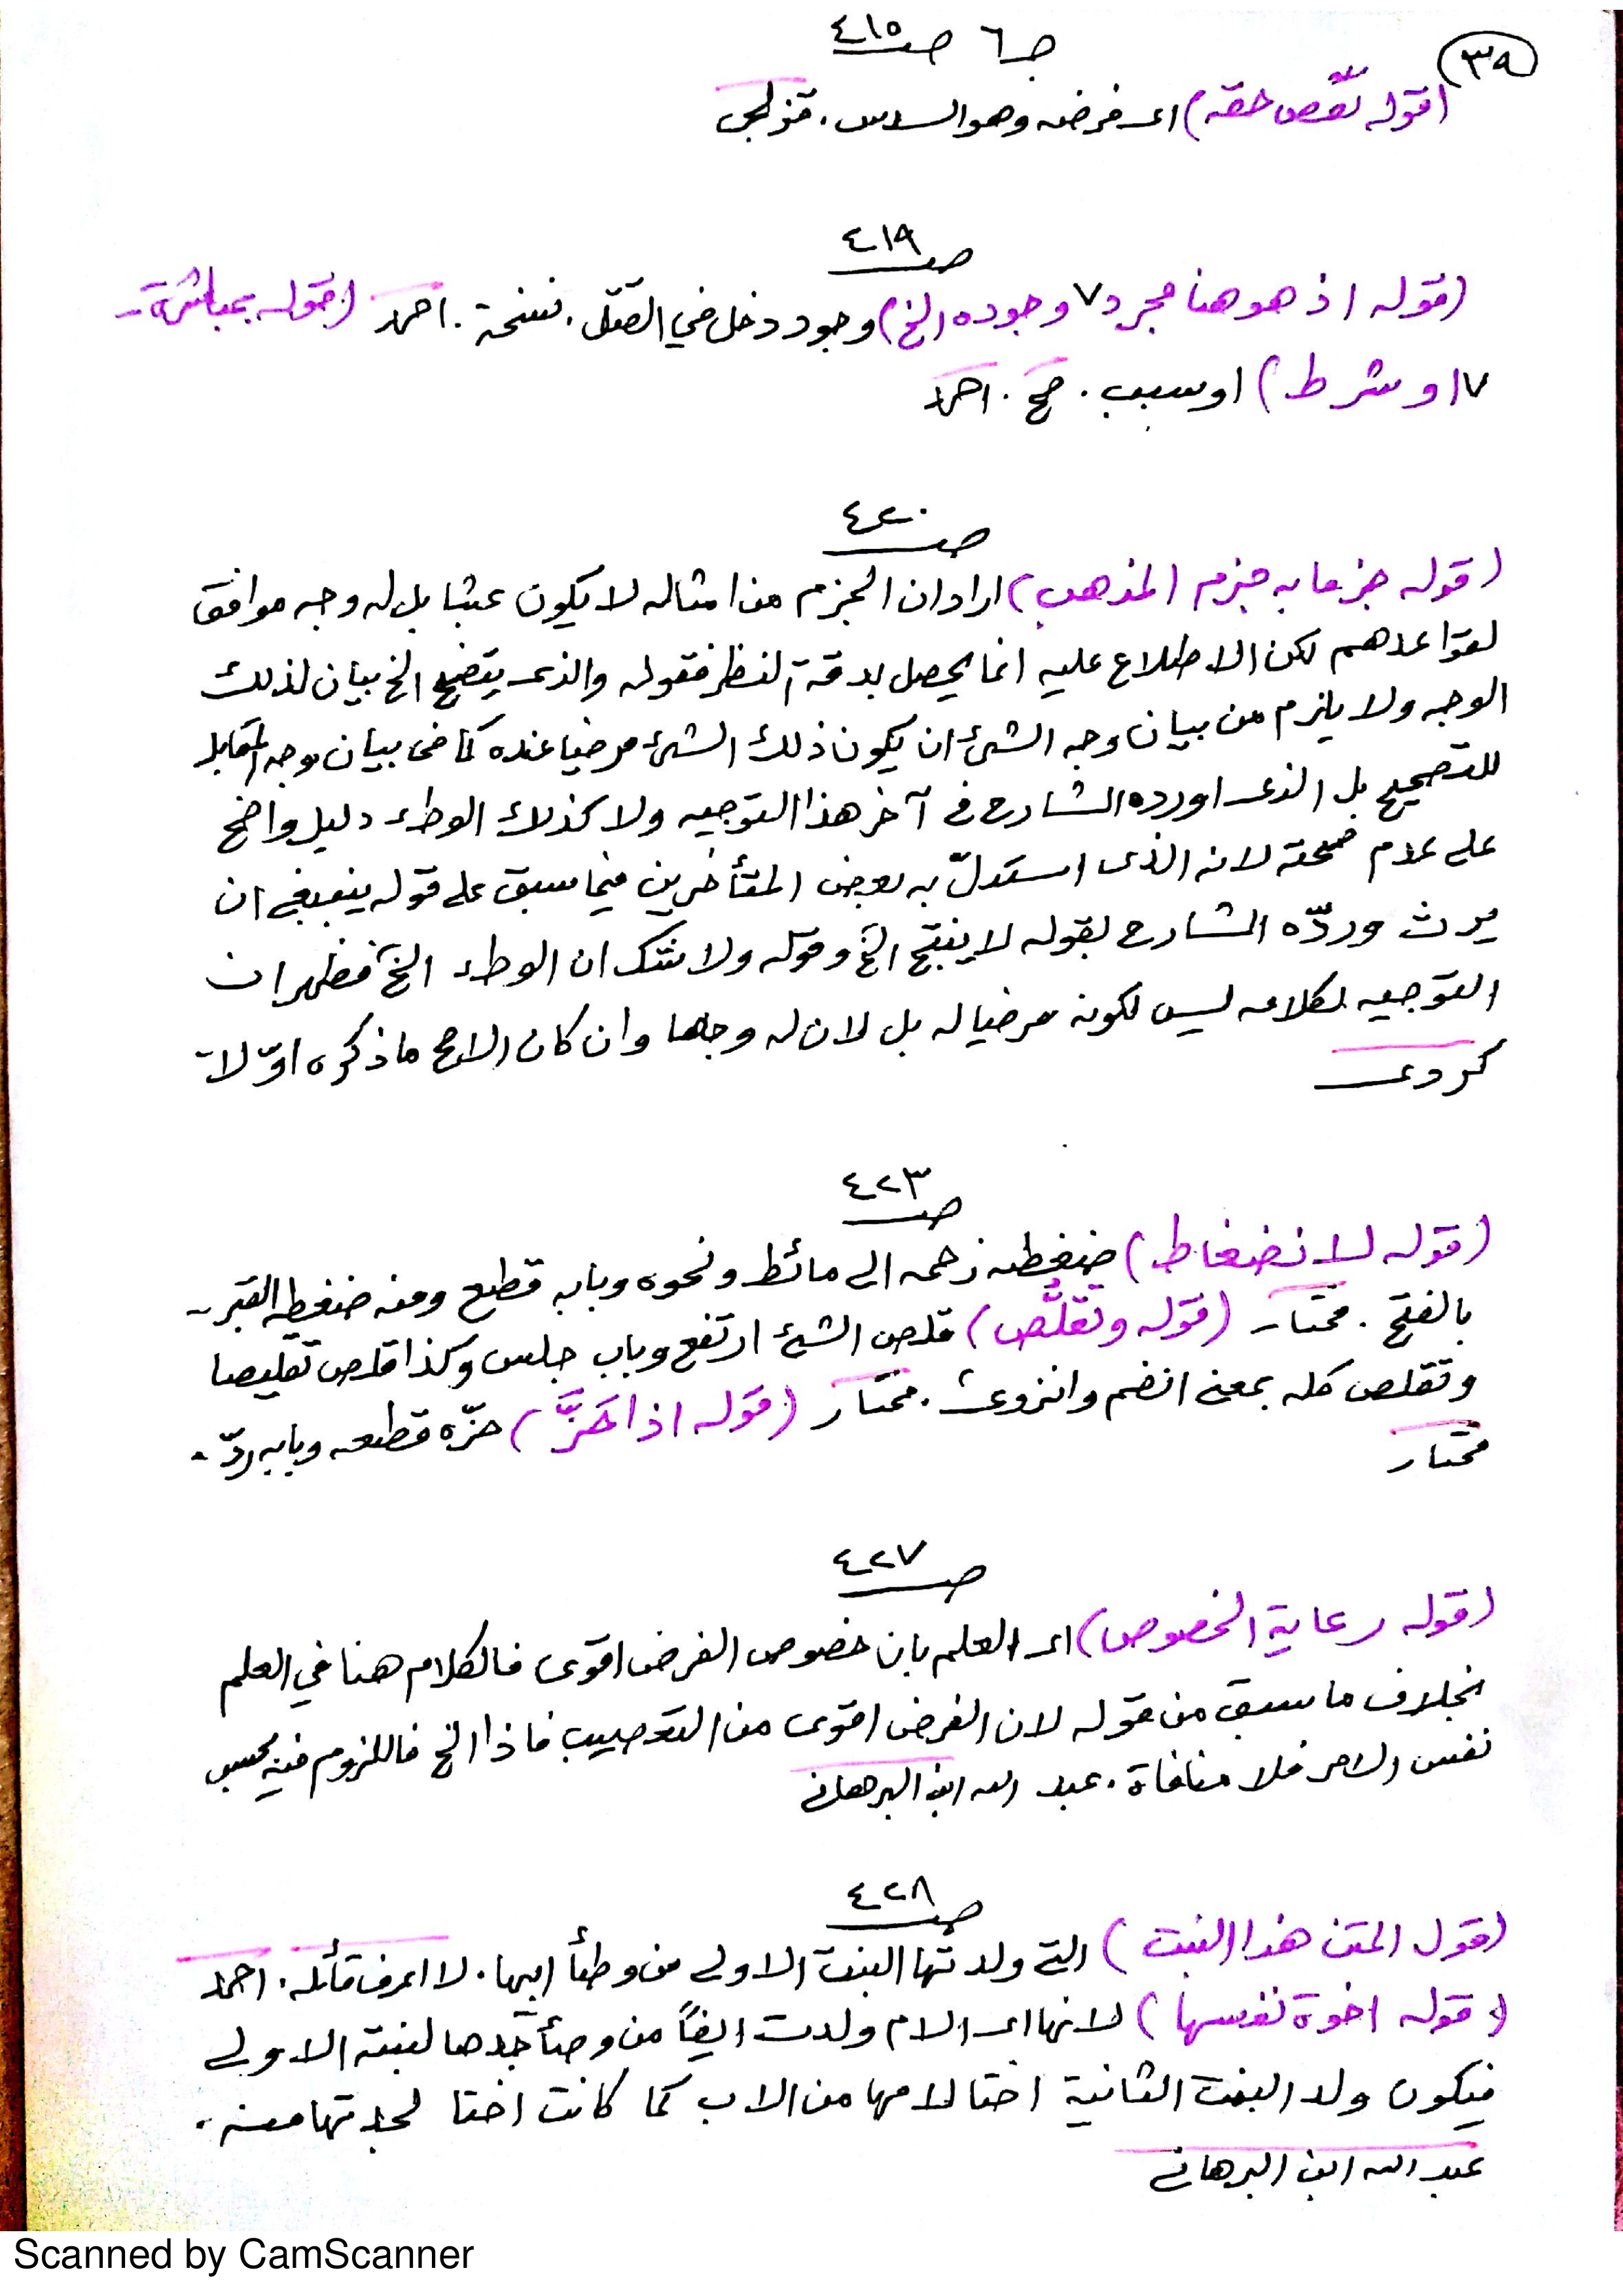 ٣٩
ج ٦ صـ ٤١٥
(قوله نقص حقه) اى فرضه وهو السدس. قزلجى
صـ ٤١٩
(قوله اذ هو هنا مجرد ٧ وجوده الخ) وجود دخل في القتل. نسخة. احمد (قوله بمباشرة
٧ او شرط) او سبب. صح. احمد
صـ ٤٢٠
(قوله جزما به جزم المذهب) اراد ان الجزم من امثاله لا يكون عبثا بل له وجه موافق
لقواعدهم لكن الاطلاع عليه انما يحصل بدقة النظر فقوله والذى يتضح الخ بيان لذلك
الوجه ولا يلزم من بيان وجه الشئ ان يكون ذلك الشئ مرضيا عنده كما في بيان وجه المقابل
للتصحيح بل الذى اورده الشارح في آخر هذا التوجيه ولا كذلك الوطء دليل واضح
على عدم صحته لانه الذى استدلّ به بعض المتأخرين فيما سبق على قوله ينبغى ان
يرث وردّه الشارح بقوله لا ينتج الخ وقوله ولا شك ان الوطء الخ فظهر ان
التوجيه لكلامه ليس لكونه مرضيا له بل لان له وجها وان كان الاوجه ما ذكره اوّلا
كردى
صـ ٤٢٣
(قوله لانضغاط) ضغطه زحمه الى حائط ونحوه وبابه قطع ومنه ضغطة القبر
بالفتح. مختار (قوله وتَقَلُّص) قلص الشئ ارتفع وباب جلس وكذا قلص تقليصا
وتقلص كله بمعنى انضم وانزوى. مختار (قوله اذا حَزَّ) حزّه قطعه وبابه ردّ.
مختار
صـ ٤٢٧
(قوله رعاية الخصوص) اى العلم بان خصوص الفرض اقوى فالكلام هنا في العلم
بخلاف ما سبق من قوله لان الفرض اقوى من التعصيب فاذا الخ فاللزوم فيه بحسب
نفس الامر فلا منافاة. عبد الله ابن البرهانى
صـ ٤٢٨
(قول المتن هذا البنت) التى ولدتها البنت الاولى من وطأ ابيها. لا اعرف قائله. احمد
(قوله اخوة نفسها) لانها اى الام ولدت ايضاً من وطأ جدها لبنته الاولى
فيكون ولد البنت الثانية اختا لامها من الاب كما كانت اختا لجدتها منه.
عبد الله ابن البرهانى
Scanned by CamScanner